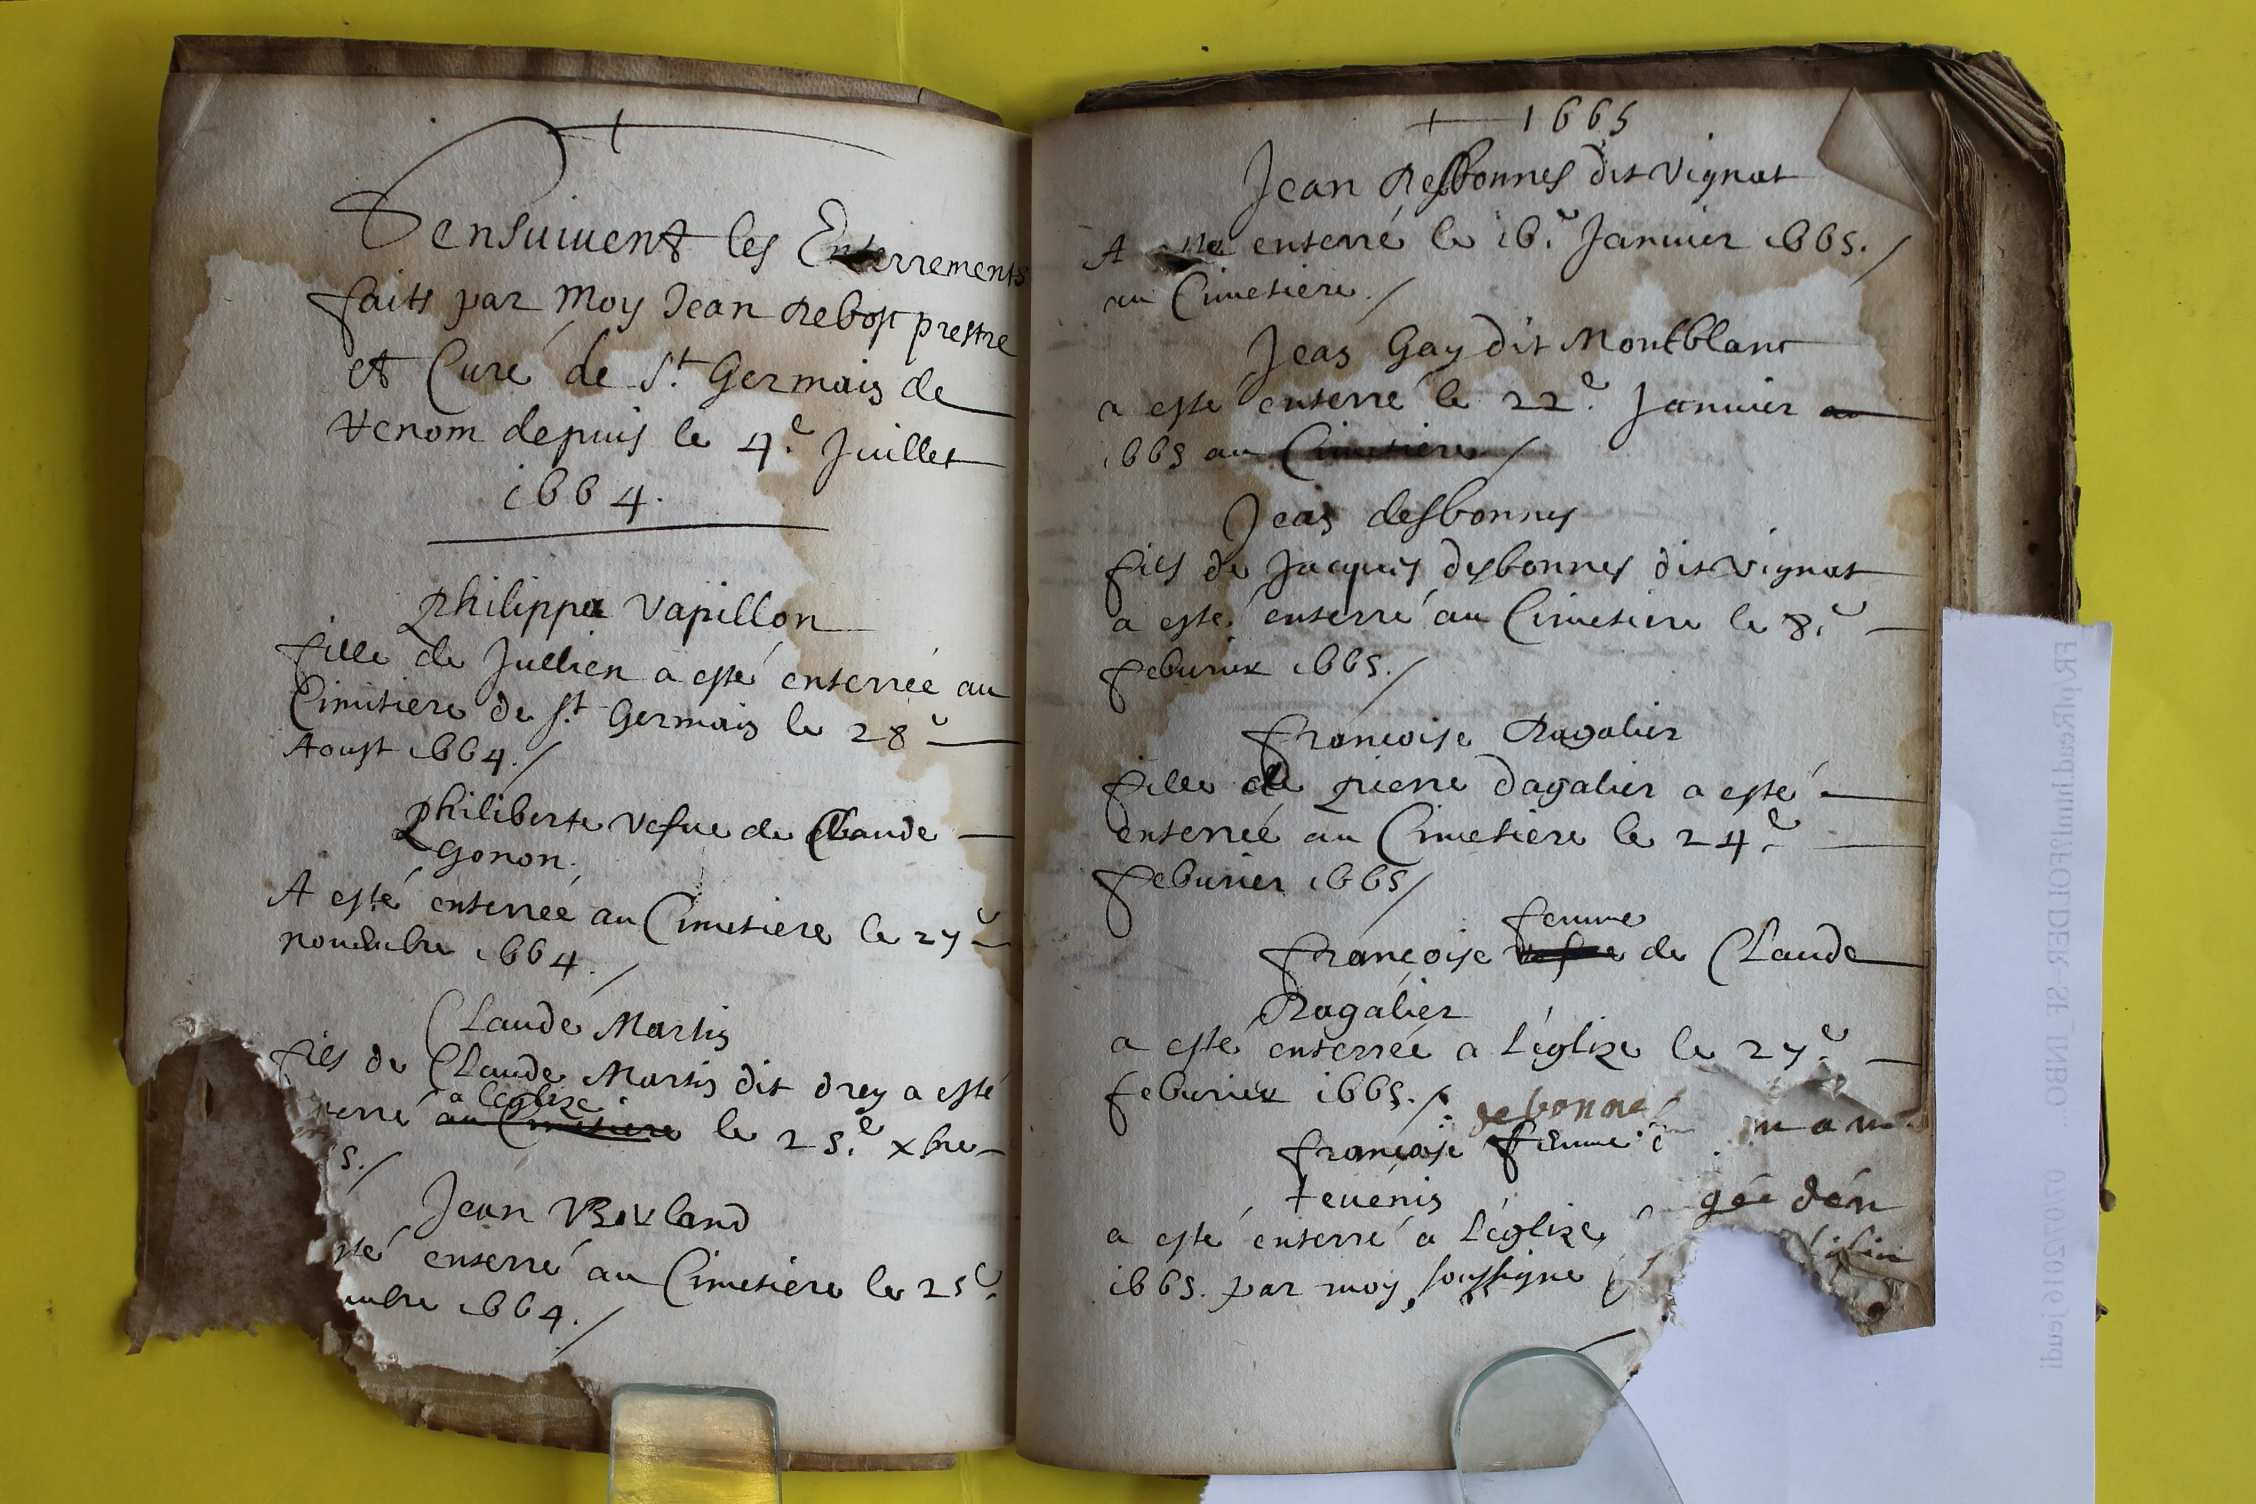 S'ensuivent les Enterrements
faits par Moy Jean Rebost prestre
et Curé de St Germain de
Venom depuis le 4e Juillet
1664.
philippa vapillon
fille de Jullien a esté enterrée au
Cimitiere de St Germain le 28e
Aoust 1664./
philiberte vefue de Claude
Gonon.
A esté enterrée au Cimetiere le 27e
nouembre 1664./
Claude Martin
fils de Claude Martin dit drey a esté
terré a l'églize au Cimetiere le 25.e xbre
5./
Jean
sté enterré au Cimetiere le 25e
embre 1664./
1665
Jean Desbonnes dit vignat
A enterré le 16.e Januier 1665./
au Cimetiere./
Jean Gay dit Montblanc
a esté enterré le 22.e Januier au
1665 au Cimetiere/
Jean desbonnes
fils de Jacques desbonnes dit vignat
a esté enterré au Cimetiere le 8.e
feburier 1665./
françoise Dagalier
fille de pierre dagalier a esté
enterrée au Cimetiere le 24.e
feburier 1665/
femme
françoise vefue de Claude
Dagalier
a esté enterrée a l'églize le 27.e
feburier 1665./
debonnes
françoise femme
teuenin gée dén
a esté enterré a l'églize
1665. par moy soussigne
FR pl Read.html?FOLDER-SE_INBO... 0/07/2016 jeudi